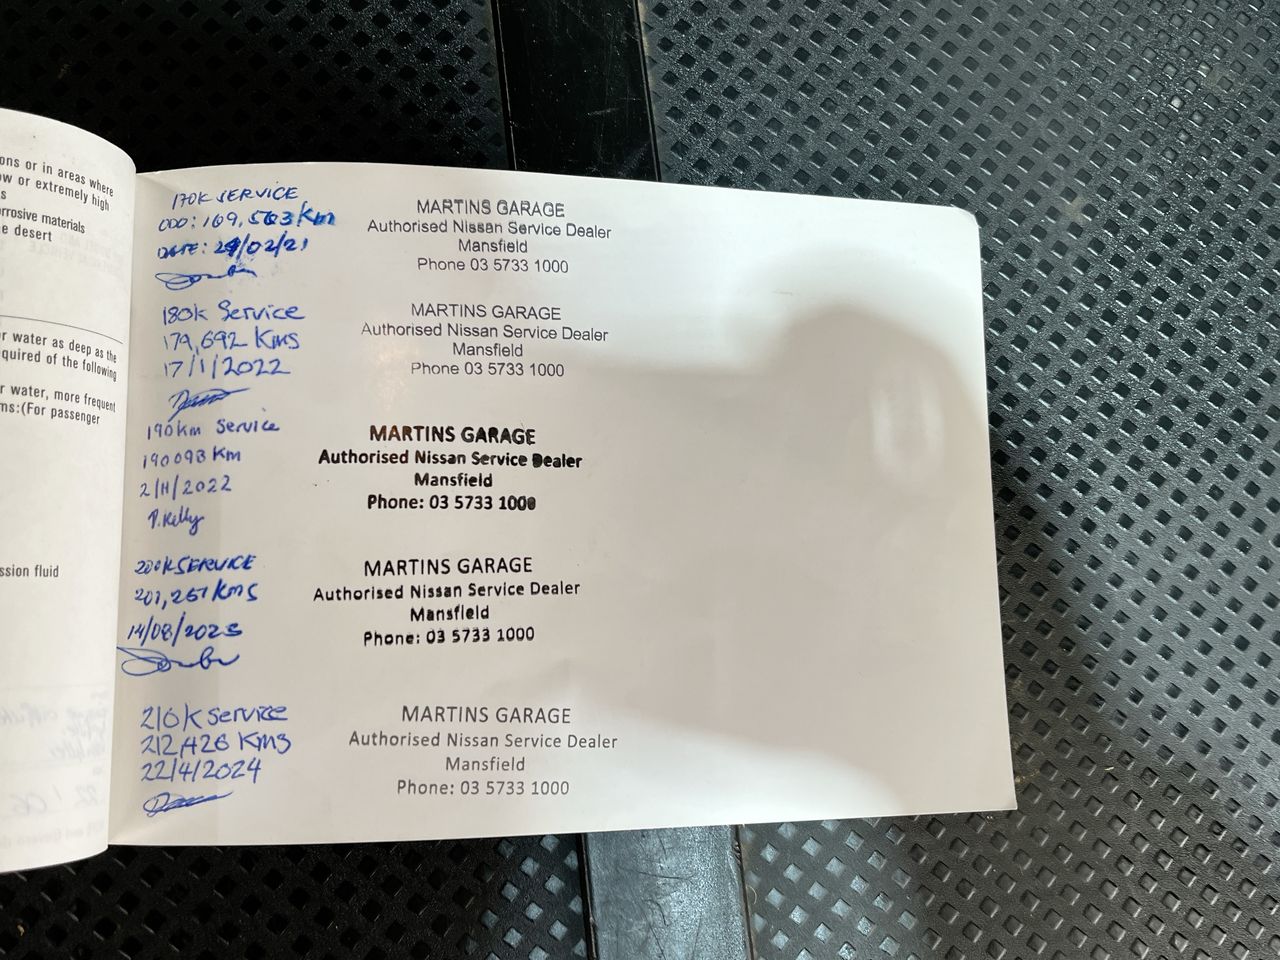 ons or in areas where
ow or extremely high
s
rrosive materials
e desert
r water as deep as the
equired of the following
r water, more frequent
ms:(For passenger
ssion fluid
170K SERVICE
ODO: 169,563 Km
DATE: 24/02/21
MARTINS GARAGE
Authorised Nissan Service Dealer
Mansfield
Phone 03 5733 1000
180k Service
179,692 Kms
17/1/2022
MARTINS GARAGE
Authorised Nissan Service Dealer
Mansfield
Phone 03 5733 1000
190km Service
190093 Km
2/11/2022
P.Kelly
MARTINS GARAGE
Authorised Nissan Service Dealer
Mansfield
Phone: 03 5733 1000
200K SERVICE
201,267 KMS
14/08/2023
MARTINS GARAGE
Authorised Nissan Service Dealer
Mansfield
Phone: 03 5733 1000
210K Service
212,426 Kms
22/4/2024
MARTINS GARAGE
Authorised Nissan Service Dealer
Mansfield
Phone: 03 5733 1000